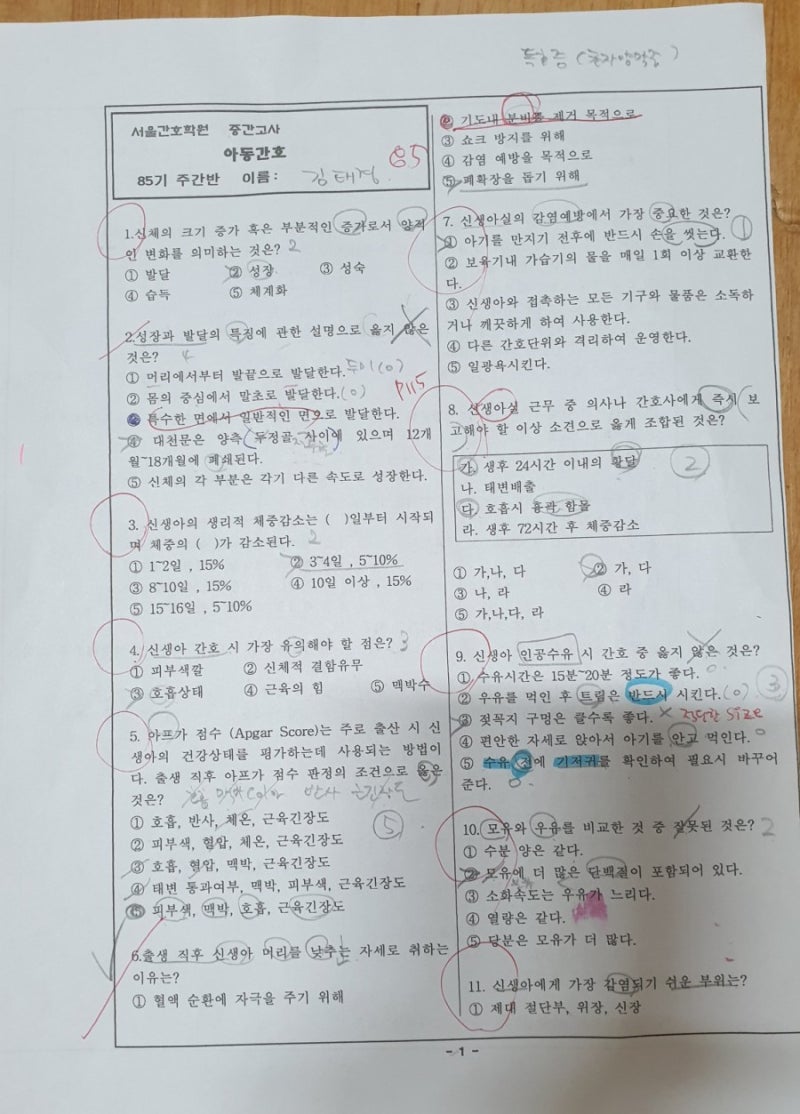 특수줌 (
서울간호학원 중간고사
아동간호
85기 주간반 이름: 김태경
85
1.신체의 크기 증가 혹은 부분적인 증가로서 양적
인 변화를 의미하는 것은? 2
① 발달 ② 성장 ③ 성숙
④ 습득 ⑤ 체계화
2.성장과 발달의 특징에 관한 설명으로 옳지 않은
것은? 4
① 머리에서부터 발끝으로 발달한다. 두미(O)
② 몸의 중심에서 말초로 발달한다. (O)
P115
③ 특수한 면에서 일반적인 면으로 발달한다.
④ 대천문은 양측 두정골 사이에 있으며 12개
월~18개월에 폐쇄된다.
⑤ 신체의 각 부분은 각기 다른 속도로 성장한다.
3. 신생아의 생리적 체중감소는 ( )일부터 시작되
며 체중의 ( )가 감소된다. 2
① 1~2일 , 15% ② 3~4일 , 5~10%
③ 8~10일 , 15% ④ 10일 이상 , 15%
⑤ 15~16일 , 5~10%
4. 신생아 간호 시 가장 유의해야 할 점은? 3
① 피부색깔 ② 신체적 결함유무
③ 호흡상태 ④ 근육의 힘 ⑤ 맥박수
5. 아프가 점수 (Apgar Score)는 주로 출산 시 신
생아의 건강상태를 평가하는데 사용되는 방법이
다. 출생 직후 아프가 점수 판정의 조건으로 옳은
것은? 맥박 반사 근긴장도
① 호흡, 반사, 체온, 근육긴장도
⑤
② 피부색, 혈압, 체온, 근육긴장도
③ 호흡, 혈압, 맥박, 근육긴장도
④ 태변 통과여부, 맥박, 피부색, 근육긴장도
⑤ 피부색, 맥박, 호흡, 근육긴장도
6.출생 직후 신생아 머리를 낮추는 자세로 취하는
이유는?
① 혈액 순환에 자극을 주기 위해
② 기도내 분비물 제거 목적으로
③ 쇼크 방지를 위해
④ 감염 예방을 목적으로
⑤ 폐확장을 돕기 위해
7. 신생아실의 감염예방에서 가장 중요한 것은?
① 아기를 만지기 전후에 반드시 손을 씻는다. ①
② 보육기내 가습기의 물을 매일 1회 이상 교환한
다.
③ 신생아와 접촉하는 모든 기구와 물품은 소독하
거나 깨끗하게 하여 사용한다.
④ 다른 간호단위와 격리하여 운영한다.
⑤ 일광욕시킨다.
8. 신생아실 근무 중 의사나 간호사에게 즉시 보
고해야 할 이상 소견으로 옳게 조합된 것은?
가. 생후 24시간 이내의 황달 ②
나. 태변배출
다. 호흡시 흉곽 함몰
라. 생후 72시간 후 체중감소
① 가,나, 다 ② 가, 다
③ 나, 라 ④ 라
⑤ 가,나,다, 라
9. 신생아 인공수유 시 간호 중 옳지 않은 것은?
① 수유시간은 15분~20분 정도가 좋다. O
② 우유를 먹인 후 트림은 반드시 시킨다. (O) ③
③ 젖꼭지 구멍은 클수록 좋다. X 적당한 Size
④ 편안한 자세로 앉아서 아기를 안고 먹인다. O
⑤ 수유 전에 기저귀를 확인하여 필요시 바꾸어
준다. O
10. 모유와 우유를 비교한 것 중 잘못된 것은? 2
① 수분 양은 같다.
② 모유에 더 많은 단백질이 포함되어 있다.
③ 소화속도는 우유가 느리다.
④ 열량은 같다.
⑤ 당분은 모유가 더 많다.
11. 신생아에게 가장 감염되기 쉬운 부위는?
① 제대 절단부, 위장, 신장
- 1 -